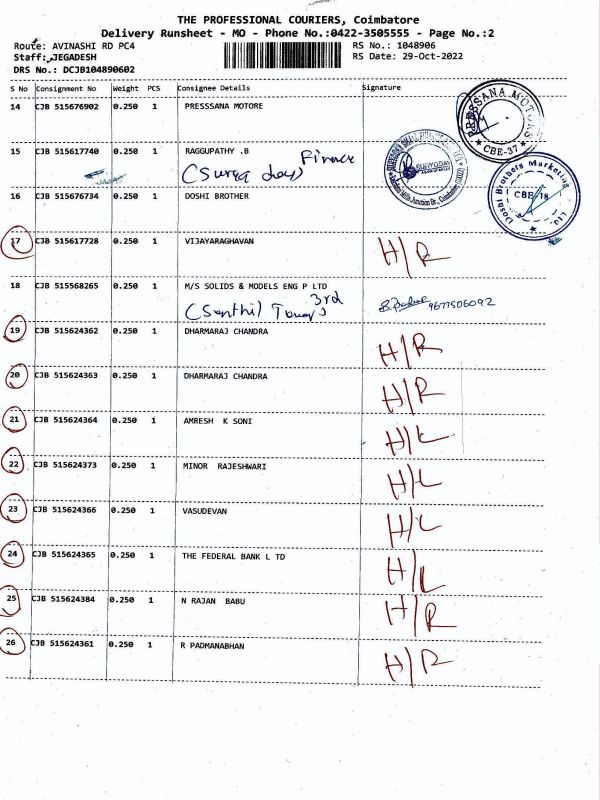 THE PROFESSIONAL COURIERS, Coimbatore
Delivery Runsheet - MO - Phone No.:0422-3505555 - Page No.:2
Route: AVINASHI RD PC4 RS No.: 1048906
Staff: JEGADESH RS Date: 29-Oct-2022
DRS No.: DCJB104890602
S No Consignment No Weight PCS Consignee Details Signature
14 CJB 515676902 0.250 1 PRESSSANA MOTORE
PRESSANA MOTORS
CBE-37
15 CJB 515617740 0.250 1 RAGGUPATHY .B
SURYODAY
16 CJB 515676734 0.250 1 DOSHI BROTHER
Doshi Brothers Marketing
CBE-18
17 CJB 515617728 0.250 1 VIJAYARAGHAVAN H/R
18 CJB 515568265 0.250 1 M/S SOLIDS & MODELS ENG P LTD
3rd
9677506092
19 CJB 515624362 0.250 1 DHARMARAJ CHANDRA H/R
20 CJB 515624363 0.250 1 DHARMARAJ CHANDRA H/R
21 CJB 515624364 0.250 1 AMRESH K SONI H/L
22 CJB 515624373 0.250 1 MINOR RAJESHWARI H/L
23 CJB 515624366 0.250 1 VASUDEVAN H/L
24 CJB 515624365 0.250 1 THE FEDERAL BANK L TD H/L
25 CJB 515624384 0.250 1 N RAJAN BABU H/R
26 CJB 515624361 0.250 1 R PADMANABHAN H/R